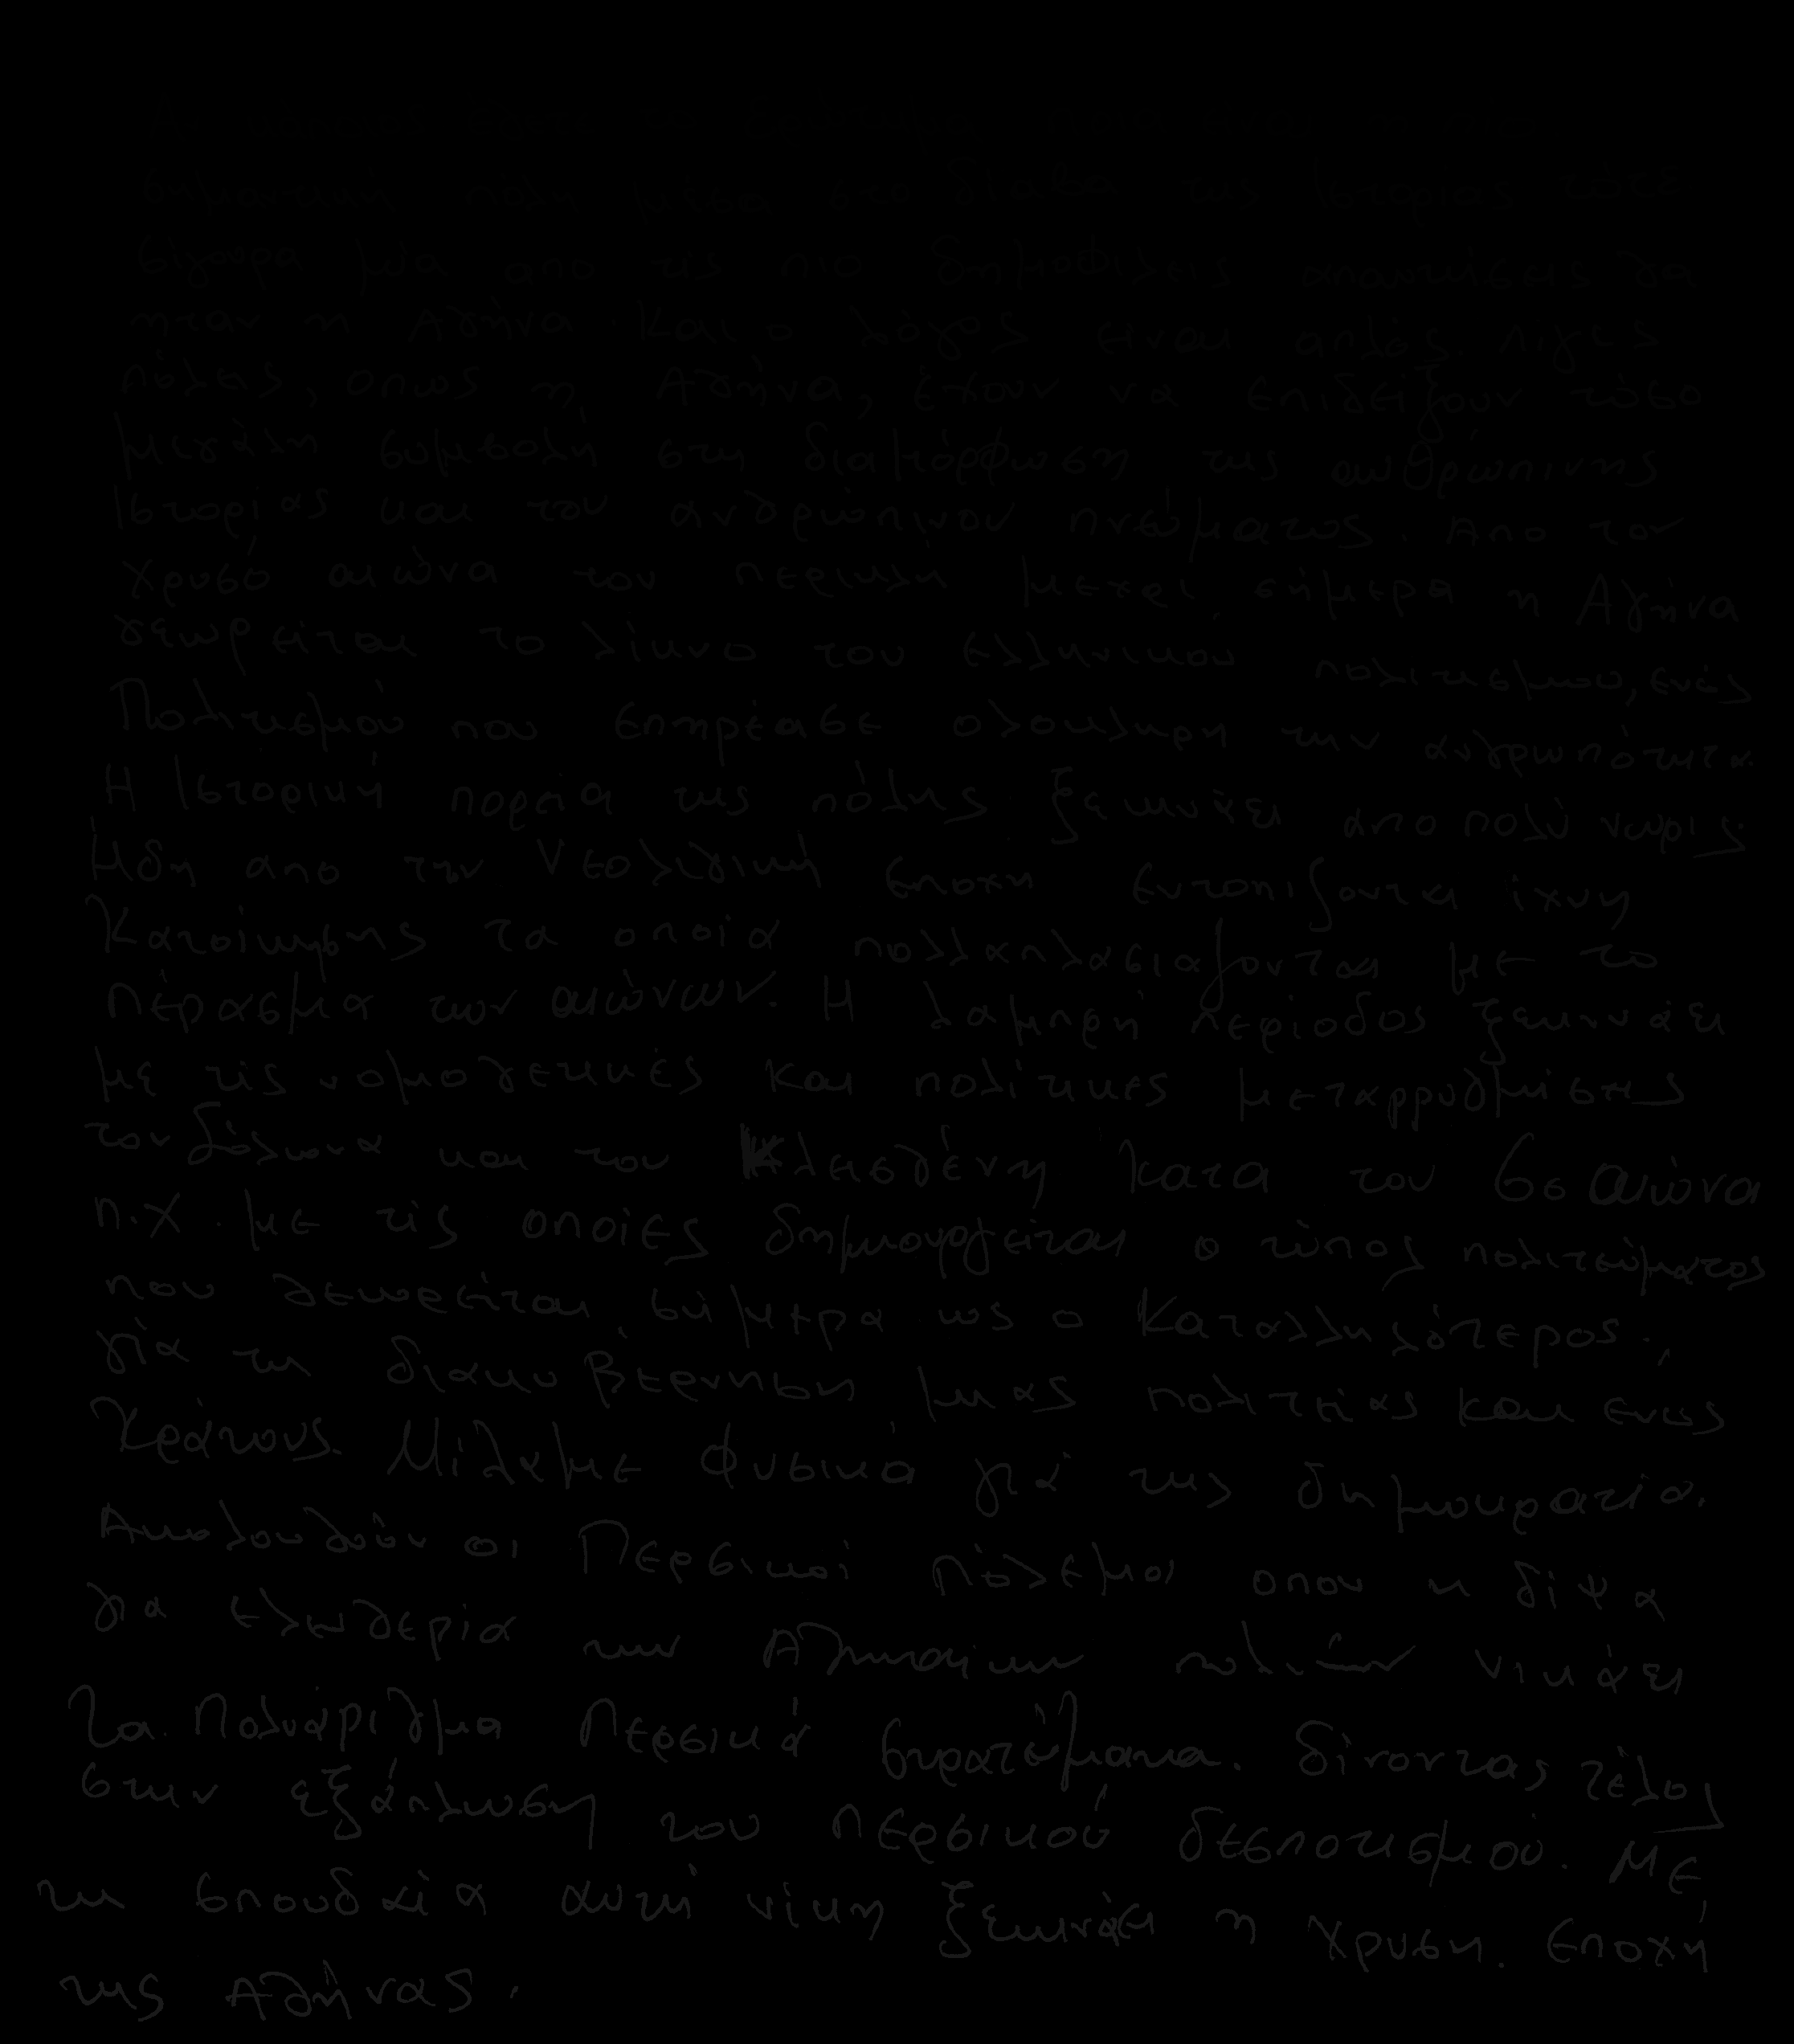 σημαντική πολη μέσα στο διαβα της Ιστοριας τότε
σίγουρα μια απο τις πιο δημοφιλεις απαντησεις θα
ηταν η Αθήνα. Και ο λόγος ειναι απλός. Λιγες
πόλεις, οπως η Αθήνα, έχουν να επιδείξουν τόσο
μεγάλη συμβολή στη διαμόρφωση της ανθρώπινης
Ιστορίας και του ανθρώπινου πνεύματος. Απο τον
χρυσό αιώνα του περικλή μεχρι σήμερα η Αθήνα
θεωρείται το λίκνο του ελληνικού πολιτισμου, ενός
Πολιτισμού που επηρέασε ολοκληρη την ανθρωπότητα.
Η Ιστορική πορεία της πόλης ξεκινάει απο πολύ νωρις.
Ήδη απο την Νεολιθική εποχη εντοπιζονται ίχνη
Κατοίκησης τα οποία πολλαπλασιαζονται με το
πέρασμα των αιώνων. Η λαμπρή περίοδος ξεκινάει
με τις νομοθετικές και πολιτικες μεταρρυθμίσεις
του Σόλωνα και του Κλεισθένη κατα τον 6ο αιώνα
π.Χ. με τις οποίες δημιουργείται ο τύπος πολιτεύματος
που θεωρείται σήμερα ως ο καταλληλότερος.
για τη διακυβερνηση μιας πολιτείας και ενος
Κράτους. Μιλάμε φυσικα γιά της δημοκρατία.
Ακολουθούν οι Περσικοί πόλεμοι οπου η δίψα
για ελευθερία των Αθηναίων πολιτών νικάει
Τα Πολυάριθμα Περσικά στρατεύματα. δίνοντας τέλος
στην εξάπλωση του περσικού δεσποτισμού. Με
τη σπουδαία αυτή νίκη ξεκινάει η χρυση. εποχή
της Αθήνας.